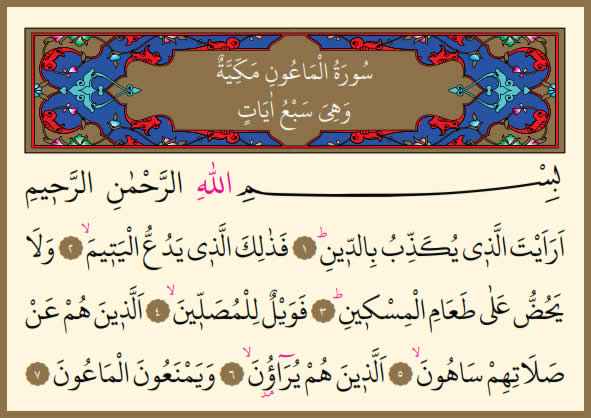 سُورَةُ الْمَاعُونِ مَكِّيَّةٌ
وَهِىَ سَبْعُ اٰيَاتٍ
بِسْمِ اللّٰهِ الرَّحْمٰنِ الرَّح۪يمِ
اَرَاَيْتَ الَّذ۪ى يُكَذِّبُ بِالدّ۪ينِۜ ﴿١﴾ فَذٰلِكَ الَّذ۪ى يَدُعُّ الْيَت۪يمَۙ ﴿٢﴾ وَلَا
يَحُضُّ عَلٰى طَعَامِ الْمِسْك۪ينِۜ ﴿٣﴾ فَوَيْلٌ لِلْمُصَلّ۪ينَۙ ﴿٤﴾ اَلَّذ۪ينَ هُمْ عَنْ
صَلَاتِهِمْ سَاهُونَۙ ﴿٥﴾ اَلَّذ۪ينَ هُمْ يُرَٓاؤُ۫نَۙ ﴿٦﴾ وَيَمْنَعُونَ الْمَاعُونَ ﴿٧﴾